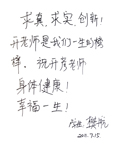 求真,求实,创新!
开老师是我们一生的榜
样。祝开老师
身体健康!
幸福一生!
学生 樊帆
2011.9.15